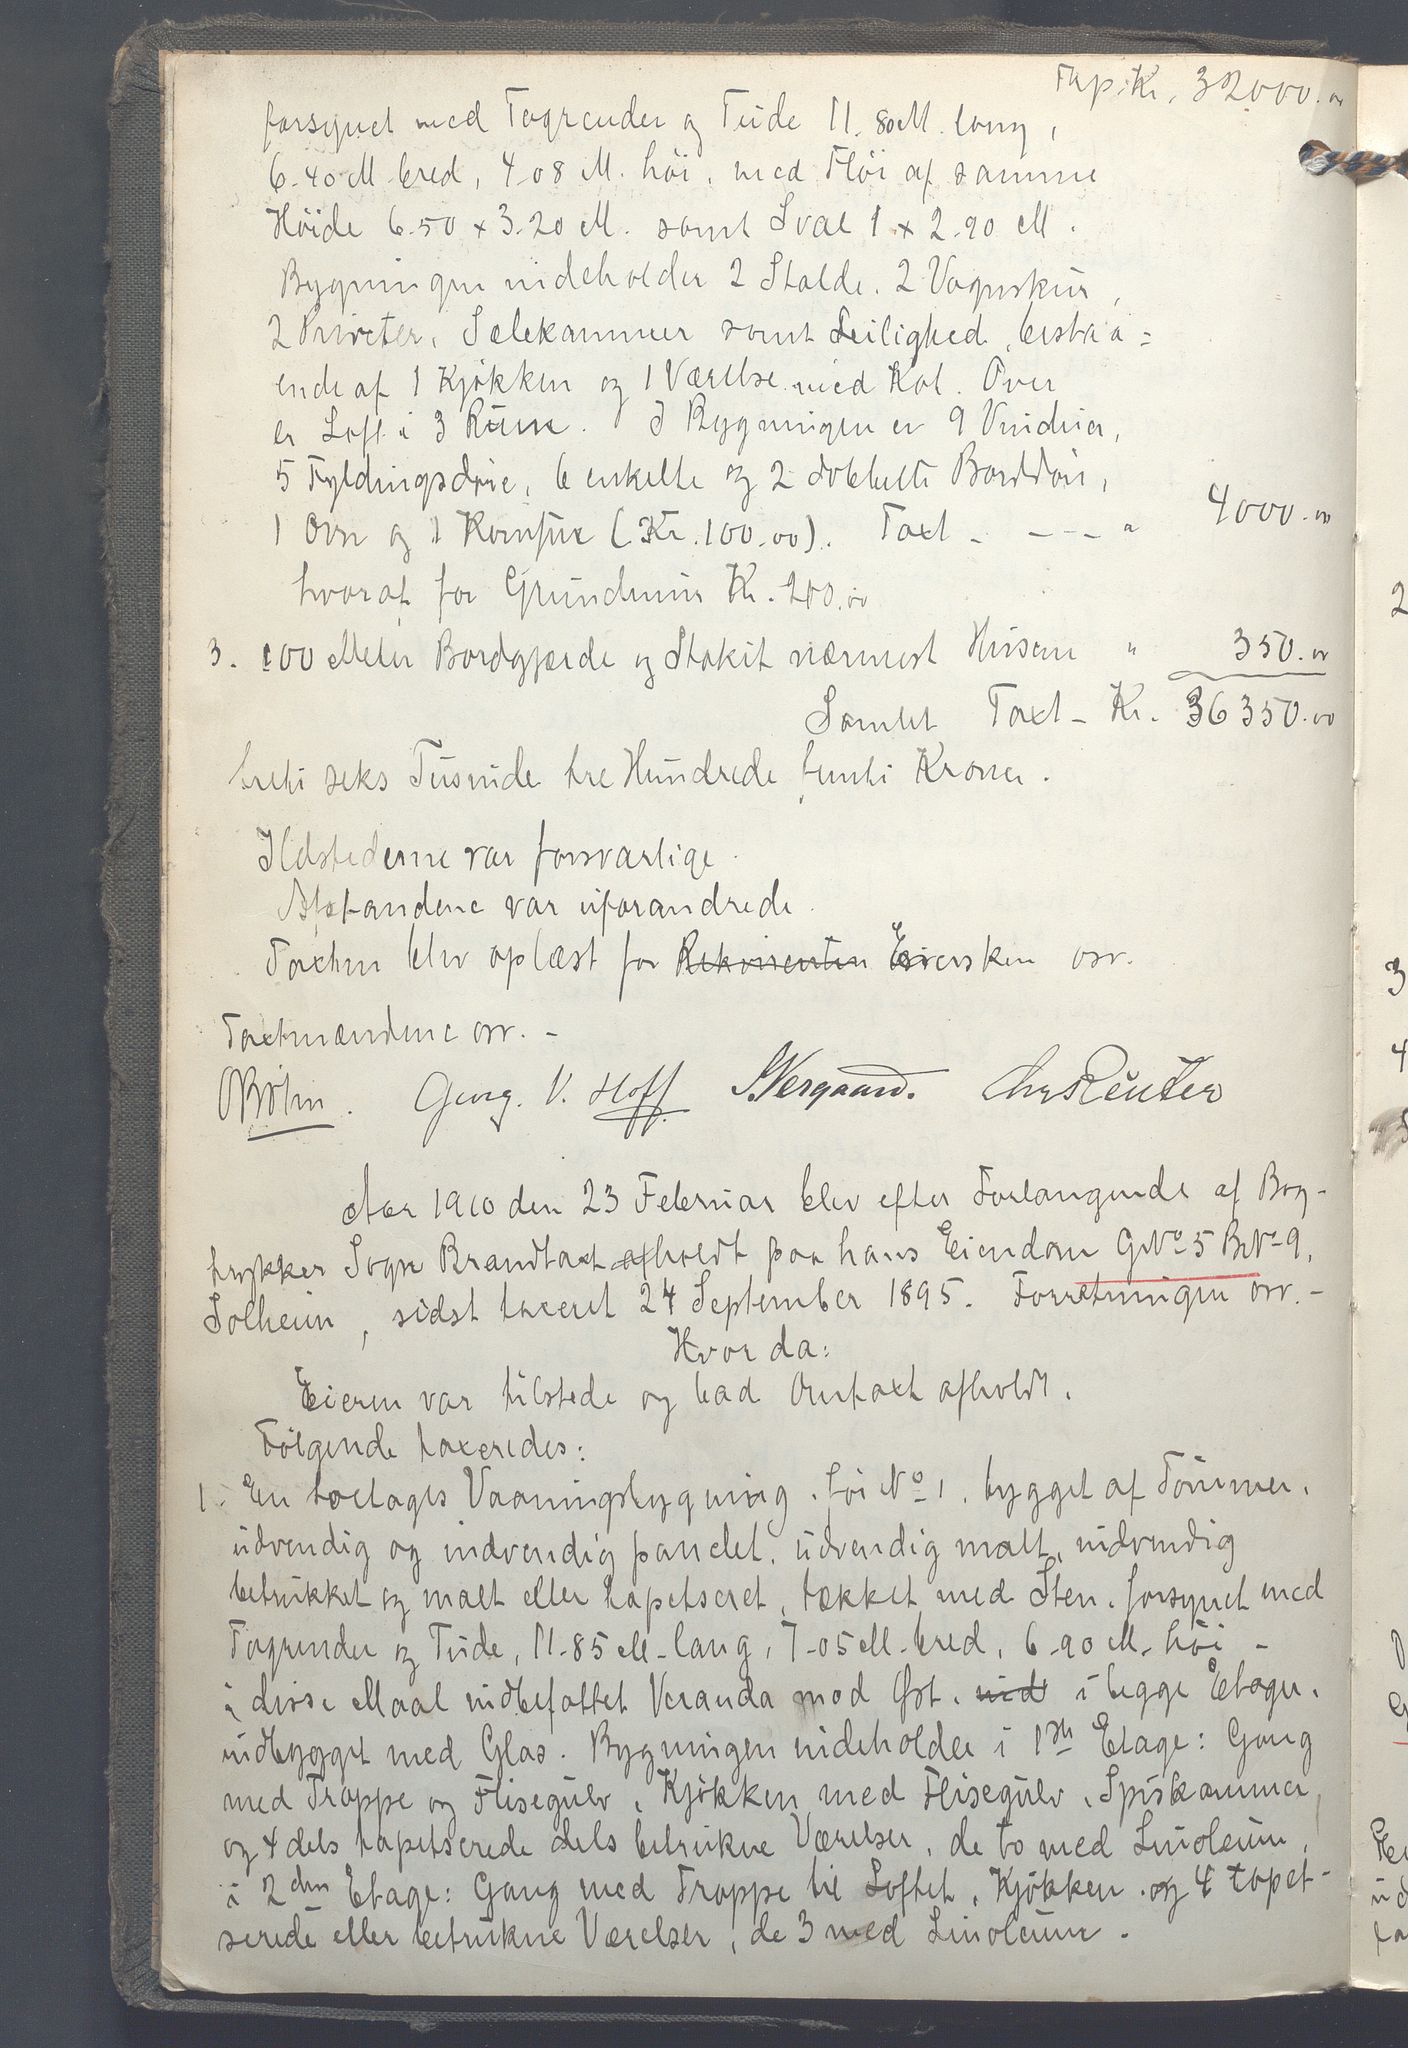 Trsp. Kr. 32000.00
forsynet med Tagrender og Tude 11.80 M. lang,
6-40 M bred, 4-08 M. höi, med Flöi af samme
Höide 6.50 x 3.20 M. samt Sval 1 x 2.90 M.
Bygningen indeholder 2 Stalde, 2 Vognskur,
2 Priveter, Selekammer samt Leilighed, bestaa=
ende af 1 Kjøkken og 1 Værelse med Kot. Over
er Loft i 3 Rum. I Bygningen er 9 Vinduer,
5 Fyldingsdøre, 6 enkelte og 2 dobbelte Borddør,
1 Ovn og 1 Komfur (Kr. 100.00). Taxt - - - - " 4000.00
hvoraf for Grundmur Kr. 200.00
3. 100 Meter Bordgjærde og Stakit nærmest Husene " 350.00
Samlet Taxt - Kr. 36350.00
treti seks Tusinde tre Hundrede femti Kroner.
Ildstederne var forsvarlige.
Afstandene var uforandrede.
Taxten blev oplæst for Rekvirenten Eiersken osv.
Taxtmændene osv. -
OBöhn. Georg. V. Hoff. Nergaard. Chr Reuter
Aar 1910 den 23 Februar blev efter Forlangende af Bog-
trykker Sogn Brandtaxt afholdt paa hans Eiendom GNo 5 BNo 9,
Solheim, sidst taxeret 24 September 1895. Forretningen osv. -
Hvorda:
Eieren var tilstede og bad Omtaxt afholdt.
Følgende taxeredes:
1. En toetages Vaaningsbygning, før No 1, bygget af Tømmer,
udvendig og indvendig panelet, udvendig malt, indvendig
betrukket og malt eller tapetseret, tækket med Sten, forsynet med
Tagrender og Tude, 11-85 M lang, 7-05 M bred, 6-90 M. höi -
i disse Maal indbefattet Veranda mod Øst, ind i begge Etager,
indbygget med Glas. Bygningen indeholder i 1ste Etage: Gang
med Trappe og Flisegulv, Kjøkken med Flisegulv, Spiskammer,
og 4 dels tapetserede dels betrukne Værelser, de to med Linoleum,
i 2den Etage: Gang med Trappe til Loftet, Kjøkken og 4 tapet-
serede eller betrukne Værelser, de 3 med Linoleum.